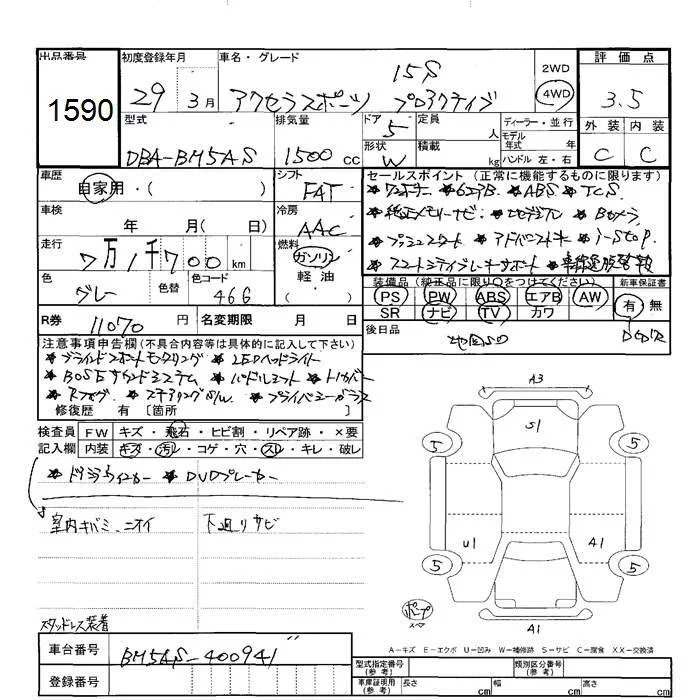 出品番号 初度登録年月 車名・グレード 評価点
1590
29 3月 アクセラスポーツ 15S プロアクティブ 2WD 4WD 3.5
型式 排気量 ドア 定員 ディーラー・並行 外装 内装
DBA-BM5AS 1500cc 5 人 モデル年式 年 C C
形状 W 積載 kg ハンドル 左・右
車歴 シフト セールスポイント(正常に機能するものに限ります)
自家用・( ) FAT ★ワンオーナー ★6エアB. ★ABS ★TCS
車検 冷房 ★純正メモリーナビ. ★地デジTV ★Bカメラ
年 月( 日) AAC ★プッシュスタート ★アドバンストキー ★i-stop.
走行 燃料 ★スマートシティブレーキサポート ★車線逸脱警報
7万1千700km ガソリン
軽油
色 色替 色コード ( ) 装備品(純正品に限り○をつけてください) 新車保証書
グレー 46G PS PW ABS エアB AW 有 無
SR ナビ TV カワ
R券 11070円 名変期限 月 日 後日品 地図SD
注意事項申告欄(不具合内容等は具体的に記入して下さい)
★ブラインドスポットモニタリング ★LEDヘッドライト
★BOSEサウンドシステム ★パドルシフト ★トノカバー
★Rフォグ. ★ステアリングS/W. ★プライバシーガラス
修復歴 有 [箇所
検査員 FW キズ・飛石・ヒビ割・リペア跡・×要
記入欄 内装 キズ・汚レ・コゲ・穴・スレ・キレ・破レ
★ドライブレコーダー ★DVDプレーヤー
室内キバミ、ニオイ 下廻リサビ
A3
S1
5 5
U1 41
5 5
41
スタッドレス装着
A-キズ E-エクボ U-凹み W-補修跡 S-サビ C-腐食 XX-交換済
車台番号 BM5AS-400941
登録番号
型式指定番号(参考) 類別区分番号(参考)
車庫証明用(参考) 長さ cm 幅 cm 高さ cm